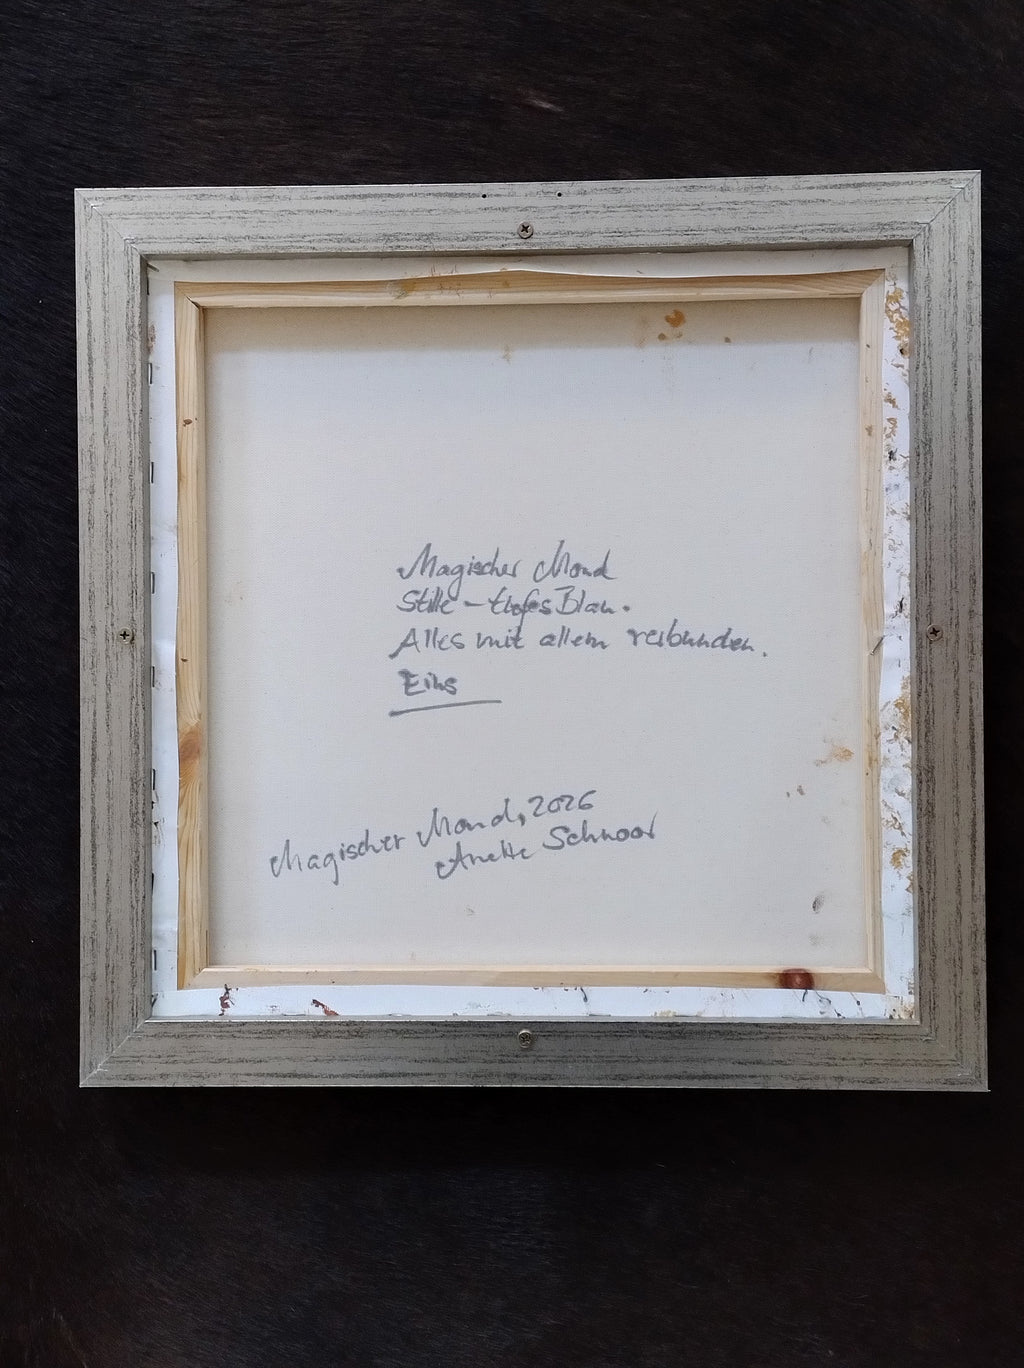 Magischer Mond
Stille - tiefes Blau.
Alles mit allem verbunden.
Eins
Magischer Mond, 2026
Anette Schnoor